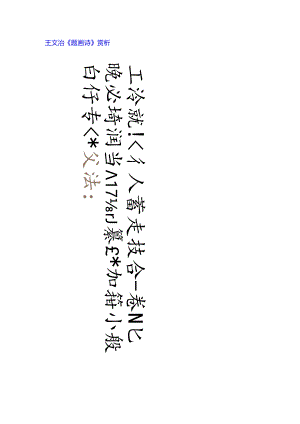 王文治《题画诗》赏析
工泠就!<彳人蓄走技合-卷N匕
晚必埼润当Λ17⅛rJ纂£*加箝小般
白仔专<*父法: